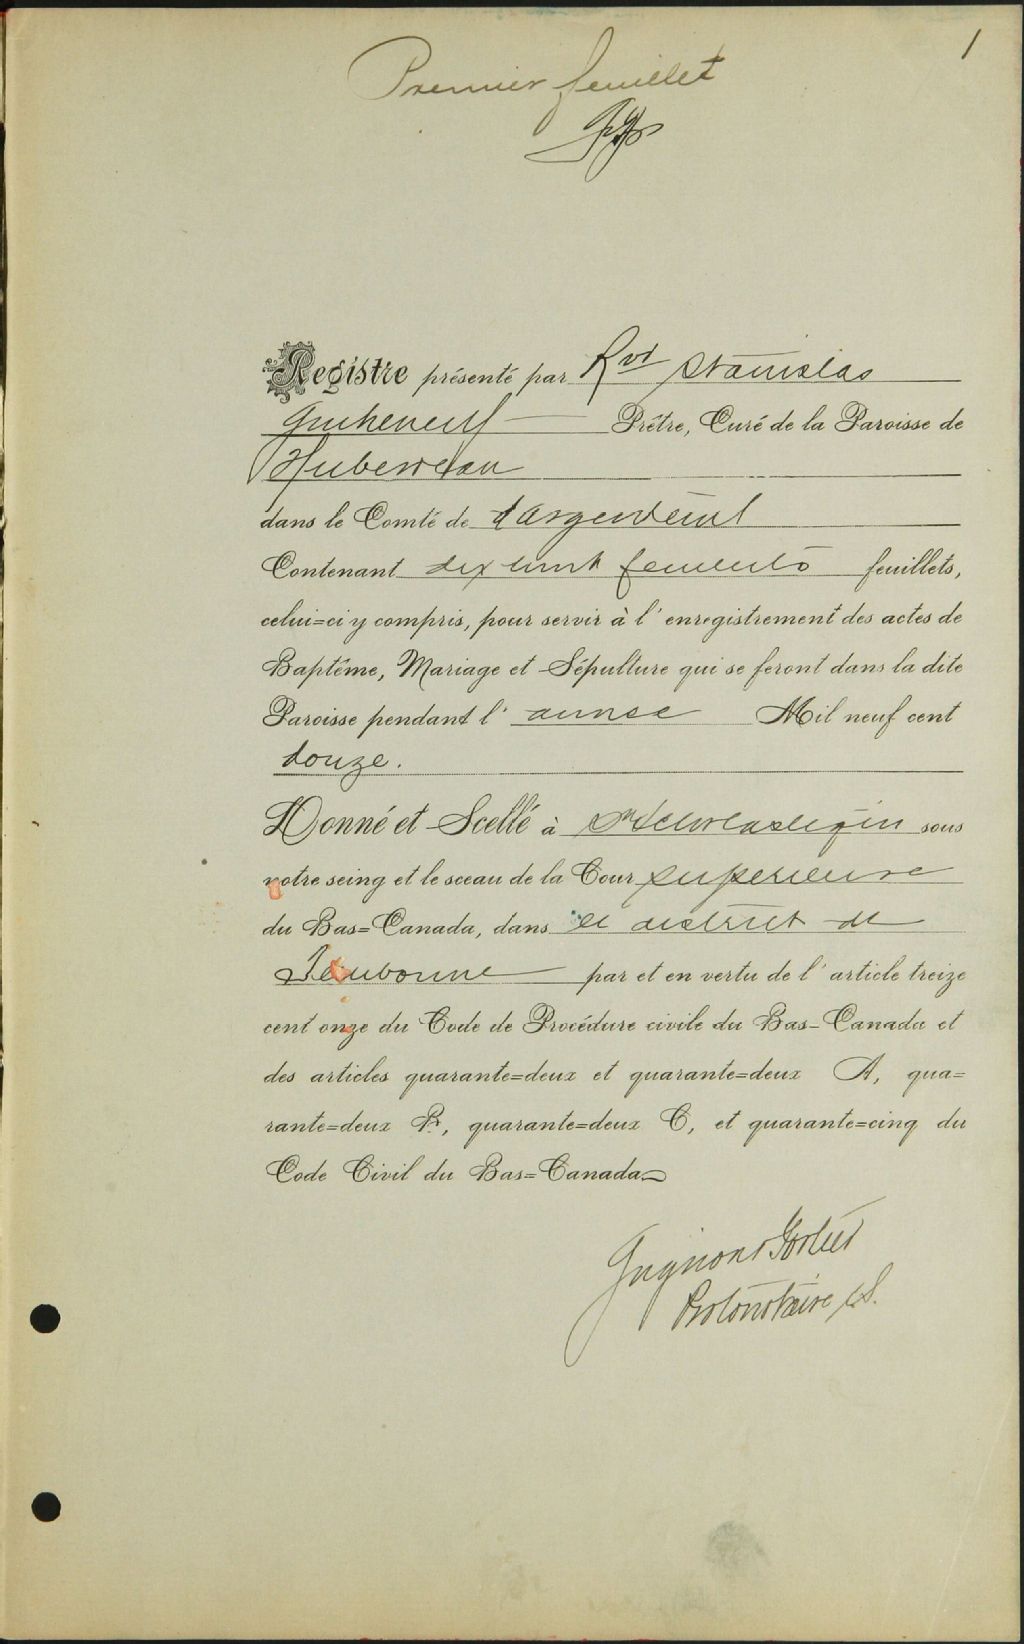 1
Premier feuillet
Registre présenté par Rvd Stanislas
Guiheneuf Prêtre, Curé de la Paroisse de
Huberdeau
dans le Comté de d'Argenteuil
Contenant dix huit feuillets feuillets,
celui=ci y compris, pour servir à l'enregistrement des actes de
Baptême, Mariage et Sépulture qui se feront dans la dite
Paroisse pendant l'année Mil neuf cent
douze.
Donné et Scellé à Ste Scholastique sous
notre seing et le sceau de la Cour supérieure
du Bas=Canada, dans le district de
Terrebonne par et en vertu de l'article treize
cent onze du Code de Procédure civile du Bas-Canada et
des articles quarante=deux et quarante=deux A, qua=
rante=deux B, quarante=deux C, et quarante=cinq du
Code Civil du Bas=Canada
Grignon & Fortier
Protonotaire C.S.